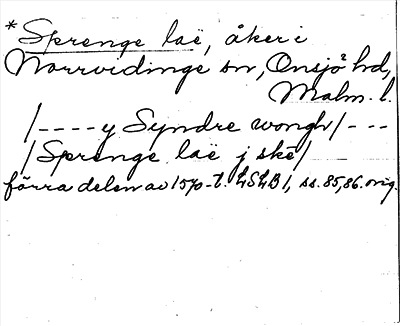 * Sprenge laë, åker i
Norrvidinge sn, Onsjö hd,
Malm. l.
/ - - - - y Syndre wongh / - - -
/ Sprenge laë j skë /
förra delen av 1570-t. LSLB 1, ss. 85, 86. orig.